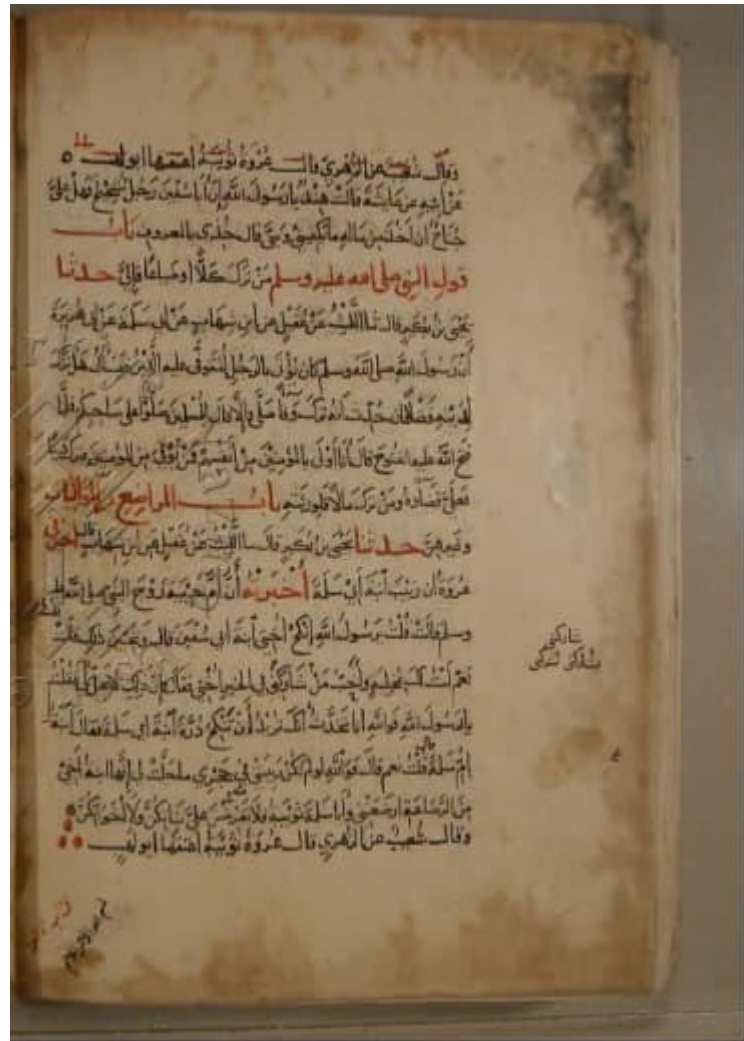 وقال شعيب عن الزهري قال عروة ثويبة اعتقها ابو لهب
عن ابيه عن عائشة قالت هند يا رسول الله ان ابا سفين رجل شحيح فهل علي
جناح ان اخذ من ماله ما يكفيني وبني قال خذي بالمعروف باب
قول النبي صلى الله عليه وسلم من ترك كلا او ضياعا فالي حدثنا
يحيى بن بكير قال ثنا الليث عن عقيل عن ابن شهاب عن ابي سلمة عن ابي هريرة
أن رسول الله صلى الله وسلم كان يؤتى بالرجل المتوفى عليه الدين فيسأل هل ترك
لدينه فضلا فان حدث أنه ترك وفاء صلى والا قال للمسلمين صلوا على صاحبكم فلما
فتح الله عليه الفتوح قال أنا أولى بالمؤمنين من أنفسهم فمن توفي من المؤمنين فترك دينا
فعلي قضاؤه ومن ترك مالا فلورثته باب المراضع من المواليات
وغيرهن حدثنا يحيى بن بكير قال ثنا الليث عن عقيل عن ابن شهاب قال اخبرني
عروة ان زينب ابنة ابي سلمة أخبرته أن أم حبيبة زوج النبي صلى الله عليه
وسلم قالت قلت يرسول الله انكح اختي ابنة ابي سفين قال وتحبين ذلك قلت
نعم لست لك بمخلية وأحب من شاركني في الخير اختي فقال ان ذلك لا يحل لي فقلت
يا رسول الله فوالله انا نتحدث انك تريد أن تنكح درة ابنة ابي سلمة فقال ابنة
ام سلمة فقلت نعم قال فوالله لو لم تكن ربيبتي في حجري ما حلت لي إنها ابنة أخي
من الرضاعة ارضعتني وأبا سلمة ثويبة فلا تعرضن علي بناتكن ولا أخواتكن
وقال شعيب عن الزهري قال عروة ثويبة أعتقها ابو لهب
شاركني